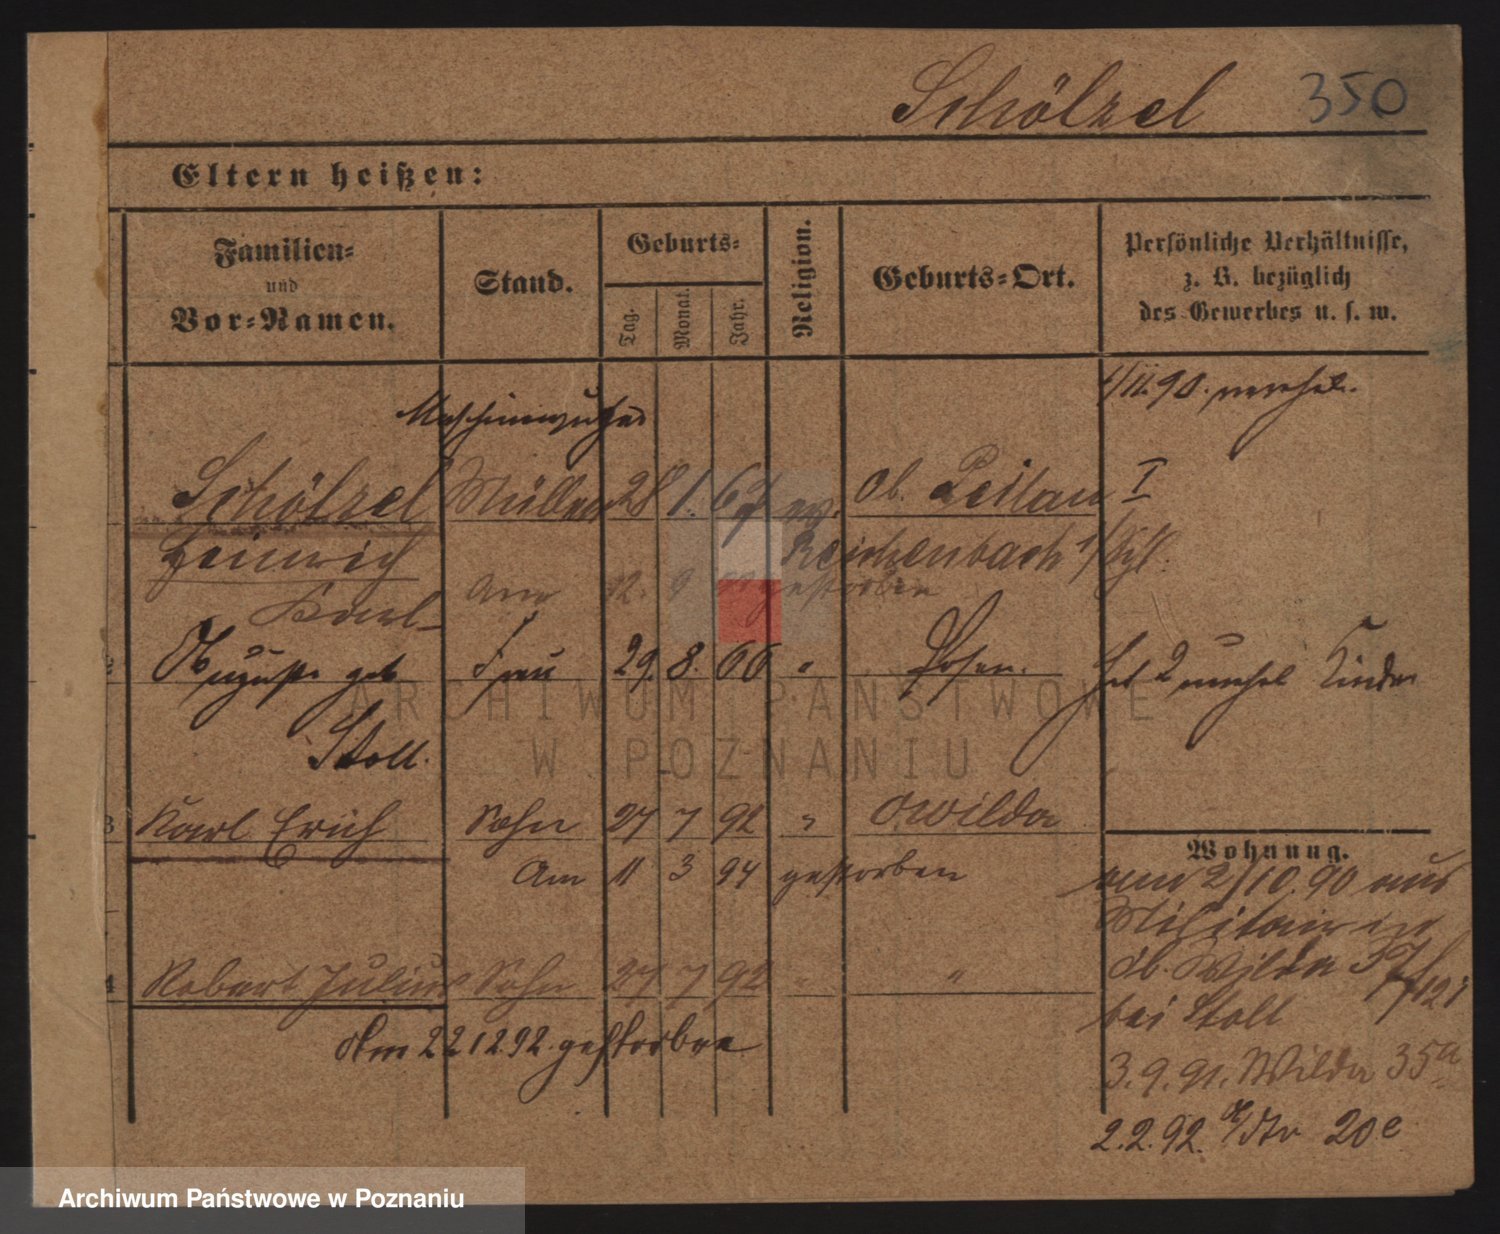 Schölzel 350
Eltern heißen:
Familien- und Vor-Namen.
Stand.
Geburts-
Tag.
Monat.
Jahr.
Religion.
Geburts-Ort.
Persönliche Verhältnisse,
z. B. bezüglich
des Gewerbes u. s. w.
90. verehel.
Schölzel Müller 28 1. 67 ev. Ob. Peilau I
Heinrich Reichenbach
Karl
Am 12. 9 gestorben
2 Auguste geb Frau 29. 8. 66 " Posen. hat 2 unehel Kinder
Stoll.
3 Karl Erich Sohn 27 7 92 " O Wilda
Am 11 3 94 gestorben
4 Robert Julius Sohn 27 7 92 " "
Am 22 12 92 gestorben
Wohnung.
am 2/10. 90 aus
Militair in
Ob. Wilda
bei Stoll
3. 9. 91. Wilda 35a
2. 2. 92. 20c
ARCHIWUM PAŃSTWOWE
W POZNANIU
Archiwum Państwowe w Poznaniu